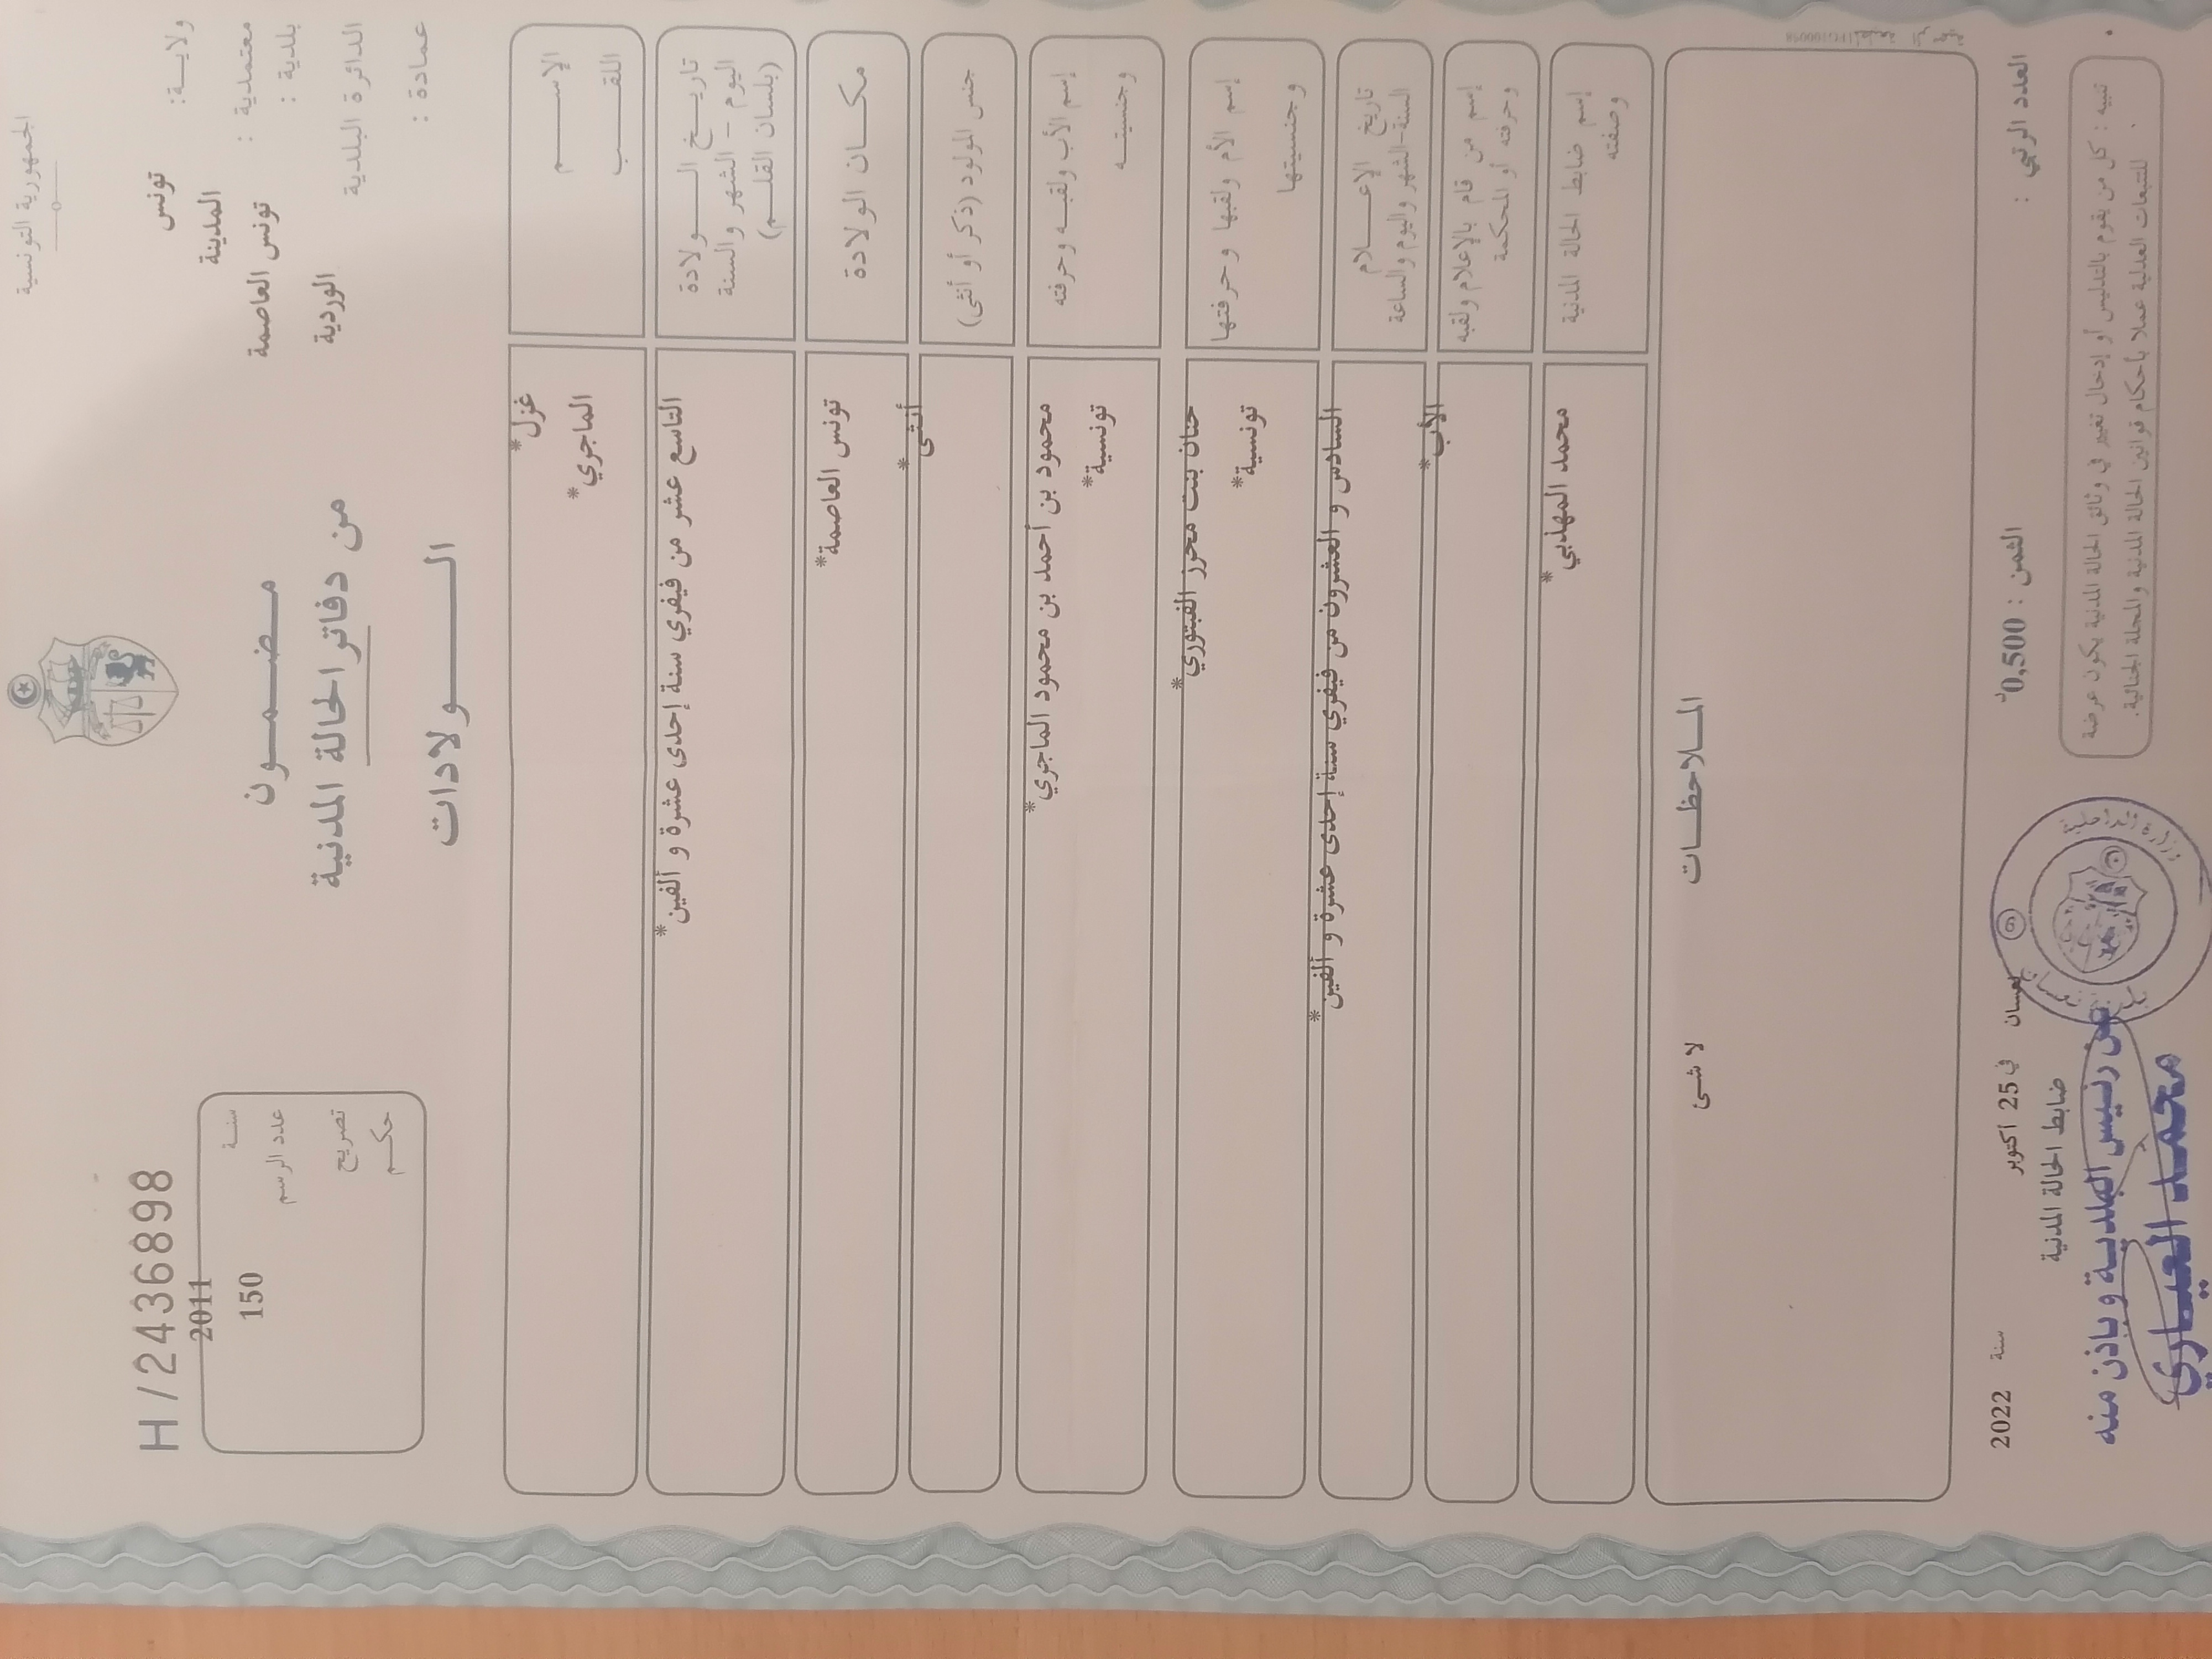 الجمهورية التونسية
ولايـــة: تونس
معتمدية : المدينة
بلدية : تونس العاصمة
الدائرة البلدية الوردية
عمادة :
H/2436898
سنـــة 2011
عدد الرسم 150
تصريح
حكـــم
مـــضـــمـــون
من دفاتر الحالة المدنية
الـــــولادات
الإســـــم غزل*
اللقـــــب الماجري*
تاريـــخ الـــــولادة
اليوم - الشهر والسنة
(بلسان القلـــم)
التاسع عشر من فيفري سنة إحدى عشرة و ألفين*
مكـــان الولادة تونس العاصمة*
جنس المولود (ذكر أو أنثى) أنثى*
إسم الأب ولقبـــه وحرفته محمود بن أحمد بن محمود الماجري*
وجنسيتـــه تونسية*
إسم الأم ولقبها وحرفتها حنان بنت محرز الفيتوري*
وجنسيتها تونسية*
تاريخ الإعـــلام
السنة-الشهر واليوم والساعة
السادس و العشرون من فيفري سنة إحدى عشرة و ألفين*
إسم من قام بالإعلام ولقبه
وحرفته أو المحكمة
الأب*
إسم ضابط الحالة المدنية محمد المهذبي*
وصفته
المـــلاحظـــات
لا شئ
العدد الرتبي :
الثمن : 0,500د
نعسان في 25 أكتوبر سنة 2022
ضابط الحالة المدنية
تنبيه : كل من يقوم بالتدليس أو إدخال تغيير في وثائق الحالة المدنية يكون عرضة
للتتبعات العدلية عملا بأحكام قوانين الحالة المدنية والمجلة الجنائية.
وزارة الداخلية
بلدية نعسان
عن رئيس البلدية وباذن منه
محمد العياري